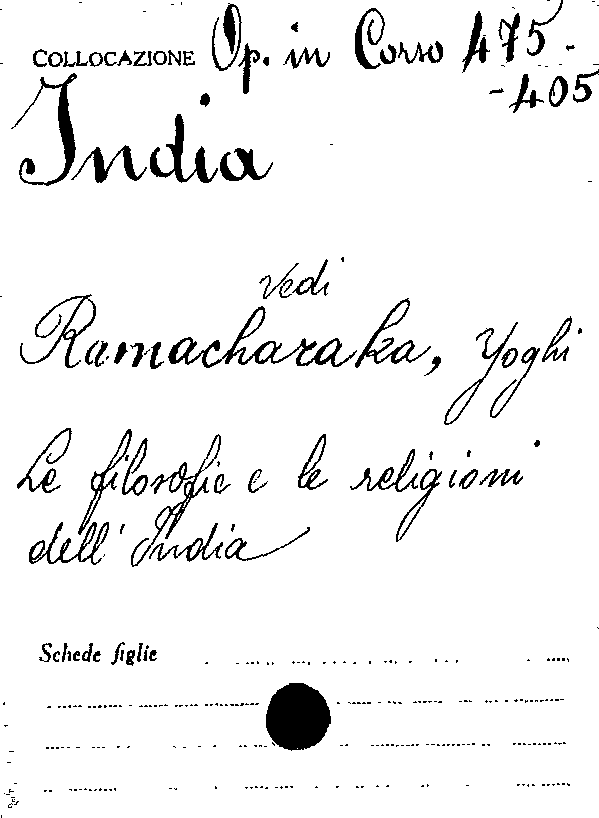 COLLOCAZIONE Op. in Corso 475-
-405
India
Vedi
Ramacharaka, Yoghi
Le filosofie e le religioni
dell'India
Schede figlie